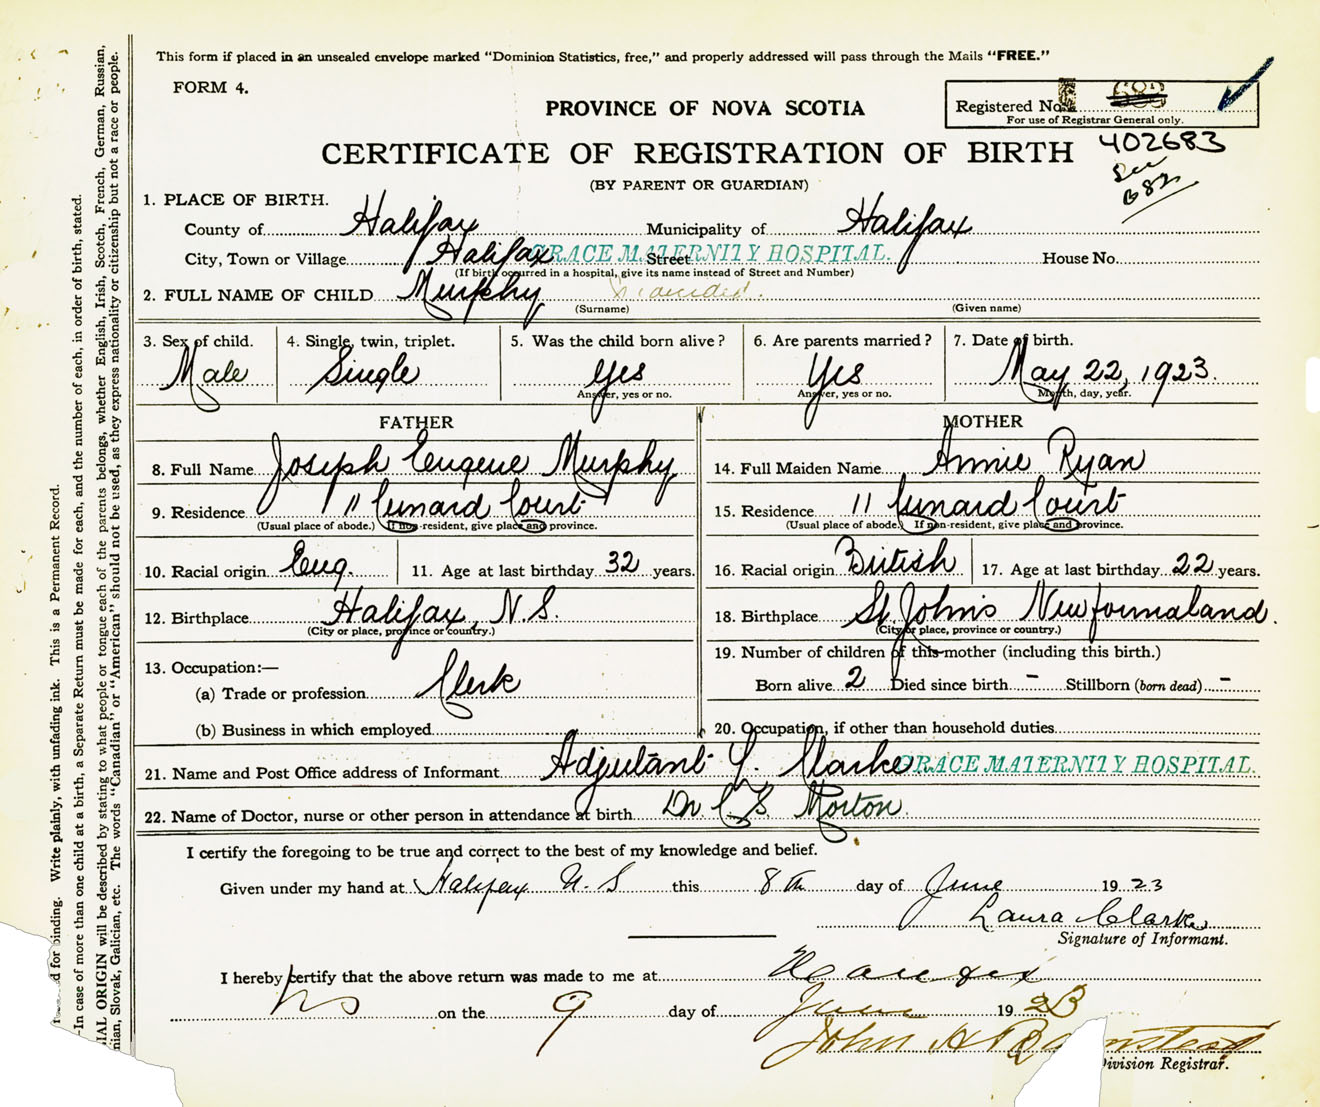 This form if placed in an unsealed envelope marked "Dominion Statistics, free," and properly addressed will pass through the Mails "FREE."
FORM 4.
PROVINCE OF NOVA SCOTIA
Registered No.
For use of Registrar General only.
402683
CERTIFICATE OF REGISTRATION OF BIRTH
See
(BY PARENT OR GUARDIAN)
1. PLACE OF BIRTH.
County of Halifax Municipality of Halifax
City, Town or Village Halifax Street GRACE MATERNITY HOSPITAL. House No.
(If birth occurred in a hospital, give its name instead of Street and Number)
2. FULL NAME OF CHILD Murphy
(Surname) (Given name)
3. Sex of child. 4. Single, twin, triplet. 5. Was the child born alive? 6. Are parents married? 7. Date of birth.
Male Single Yes Yes May 22, 1923.
Answer, yes or no. Answer, yes or no. Month, day, year.
FATHER MOTHER
8. Full Name Joseph Eugene Murphy 14. Full Maiden Name Annie Ryan
9. Residence 11 Cunard Court 15. Residence 11 Cunard Court
(Usual place of abode.) If non-resident, give place and province. (Usual place of abode.) If non-resident, give place and province.
10. Racial origin Eng. 11. Age at last birthday 32 years. 16. Racial origin British 17. Age at last birthday 22 years.
12. Birthplace Halifax, N.S. 18. Birthplace St. John's Newformaland.
(City or place, province or country.) (City or place, province or country.)
13. Occupation:— 19. Number of children of this mother (including this birth.)
(a) Trade or profession Clerk Born alive 2 Died since birth - Stillborn (born dead) -
(b) Business in which employed 20. Occupation, if other than household duties
21. Name and Post Office address of Informant Adjutant L. Clarke GRACE MATERNITY HOSPITAL.
22. Name of Doctor, nurse or other person in attendance at birth Dr. C. S. Morton.
I certify the foregoing to be true and correct to the best of my knowledge and belief.
Given under my hand at Halifax N. S this 8th day of June 1923
Laura Clarke
Signature of Informant.
I hereby certify that the above return was made to me at Halifax
NS on the 9 day of June 1923
John H
Division Registrar.
binding. Write plainly, with unfading ink. This is a Permanent Record.
-In case of more than one child at a birth, a Separate Return must be made for each, and the number of each, in order of birth, stated.
IAL ORIGIN will be described by stating to what people or tongue each of the parents belongs, whether English, Irish, Scotch, French, German, Russian,
nian, Slovak, Galician, etc. The words "Canadian" or "American" should not be used, as they express nationality or citizenship but not a race or people.